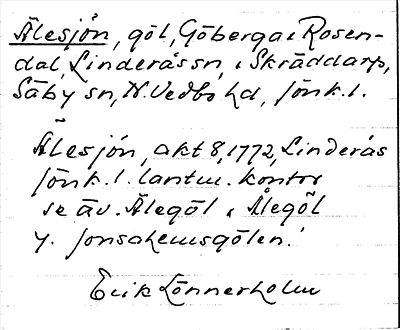 Ålesjön, göl, Göberga i Rosen-
dal, Linderås sn, i Skräddarp,
Säby sn, N. Vedbo hd, Jönk. l.
Ålesjön, akt 8, 1772, Linderås
Jönk. l. lantm. kontor
se äv. Ålegöl, Ålegöl
y.
Erik Lönnerholm